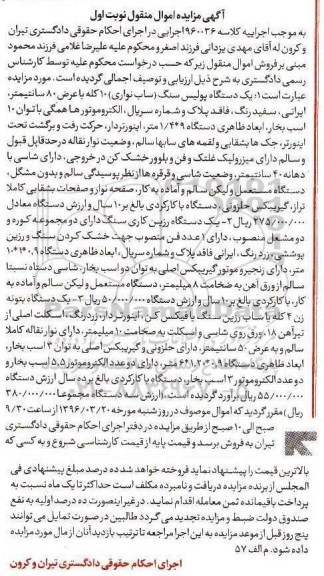 آگهی مزایده اموال منقول نوبت اول
به موجب اجراییه کلاسه ۱۹۶۰۰۳۶جرایی در اجرای احکام حقوقی دادگستری تیران
و کرون له آقای مهدی یزدانی فرزند اصغر و محکوم علیه علیرضا غلامی فرزند محمود
مبنی بر فروش اموال منقول زیر که حسب درخواست محکوم علیه توسط کارشناس
رسمی دادگستری به شرح ذیل ارزیابی و توصیف اجمالی گردیده است، مورد مزایده
عبارت است: یک دستگاه پولیس سنگ (ساب نواری) ۱۰ کله با عرض ۸۰ سانتیمتر،
ایرانی، سفید رنگ، فاقد پلاک و شماره سریال، الکتروموتورها همگی با توان ۱۰
اسب بخار، ابعاد ظاهری دستگاه ۹*۱/۴ متر، اینورتردار، حرکت رفت و برگشت تحت
اینورتر، جک ها بشقابی و لقمه های سابها سالم، وضعیت نوار نقاله در حد قابل قبول
و سالم دارای میز رولیک غلتک و فن و بلوور خشک کن در خروجی، دارای شاسی با
دهانه ۴۰ سانتیمتر، وضعیت شاسی و قرقره ها از نظر پوسیدگی سالم و بدون مشکل،
دستگاه مستعمل ولیکن سالم و آماده به کار، صفحه نوار و صفحات بشقابی کاملا
تراز، گیربکس حلزونی، دستگاه با کارکردی بالغ بر ۱۰ سال و ارزش دستگاه معادل
۲۷۵/۰۰۰/۰۰۰ ریال ۲- یک دستگاه رزین کاری سنگ دارای دو مجموعه کوره و
دو مشعل منصوب، دارای عدد فن منصوب جهت خشک کردن سنگ و رزین
پوششی، زرد رنگ، ایرانی فاقد پلاک و شماره سریال، ابعاد ظاهری دستگاه
متر، دارای زنجیر و موتور گیربکس اصلی به توان دو اسب بخار، شاسی دستگاه نسبتا
سالم از ورق آهن به ضخامت ۸ میلیمتر، دستگاه مستعمل ولیکن سالم و آماده به
کار، با کارکردی بالغ بر ۱۰ سال و ارزش دستگاه ۵۰/۰۰۰/۰۰۰ ریال ۳- یک دستگاه بتونه
زن ۴ کله یا ساب رزین سنگ یا فیکس کن، اینورتردار، زرد رنگ، اسکلت اصلی از
تیرآهن ۱۸، ورق روی شاسی و اسکلت به ضخامت ۱۰ میلیمتر، دارای نوار نقاله کاملا
سالم و به عرض ۵۰ سانتیمتر، دارای حلزونی و گیربکس اصلی به توان ۳ اسب بخار،
ابعاد ظاهری دستگاه متر، دارای دو عدد الکتروموتور ۵,۵ اسب بخار و
دو عدد الکتروموتور ۳ اسب بخار، دستگاه با کارکردی بالغ بر ده سال ارزش دستگاه
۵۵/۰۰۰/۰۰۰ ریال برآورد گردیده است. (ارزش سه دستگاه مجموعا ۳۸۰/۰۰۰/۰۰۰
ریال) مقرر گردید که اموال موصوف در روز شنبه مورخه ۱۳۹۶/۰۳/۲۰ از ساعت ۹/۳۰
صبح الی ۱۰ صبح از طریق مزایده در دفتر اجرای احکام حقوقی دادگستری
تیران به فروش برسد و قیمت پایه از قیمت کارشناسی شروع و به کسی که
بالاترین قیمت را پیشنهاد نماید فروخته خواهد شد ده درصد مبلغ پیشنهادی فی
المجلس از برنده مزایده دریافت و نامبرده مکلف است حداکثر تا یک ماه نسبت به
پرداخت باقیمانده ثمن معامله اقدام نماید. در غیر اینصورت ده درصد اولیه به نفع
صندوق دولت ضبط و مزایده تجدید می گردد طالبین در صورت تمایل می توانند
پنج روز قبل از موعد مزایده به این اجرا مراجعه تا ترتیب بازدید آنان از مال مورد مزایده
داده شود. م الف ۵۷
اجرای احکام حقوقی دادگستری تیران و کرون